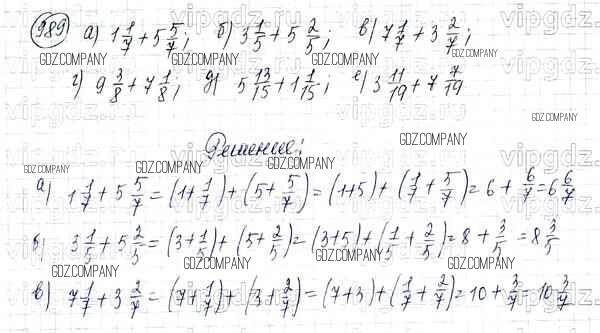 989 а) 1 1/7 + 5 5/7; б) 3 1/5 + 5 2/5; в) 7 1/7 + 3 2/7;
г) 9 3/8 + 7 1/8; д) 5 13/15 + 1 1/15; е) 3 11/19 + 7 7/19
Решение:
а) 1 1/7 + 5 5/7 = (1 + 1/7) + (5 + 5/7) = (1+5) + (1/7 + 5/7) = 6 + 6/7 = 6 6/7
б) 3 1/5 + 5 2/5 = (3 + 1/5) + (5 + 2/5) = (3+5) + (1/5 + 2/5) = 8 + 3/5 = 8 3/5
в) 7 1/7 + 3 2/7 = (7 + 1/7) + (3 + 2/7) = (7+3) + (1/7 + 2/7) = 10 + 3/7 = 10 3/7
GDZ.COMPANY
vipgdz.com